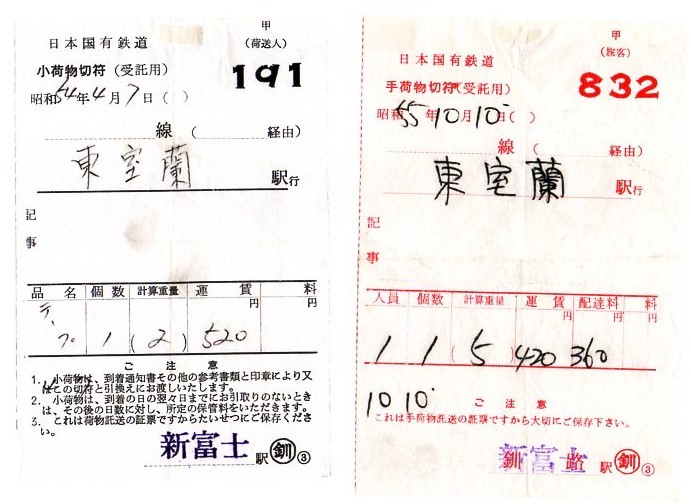 甲
日本国有鉄道 (荷送人)
小荷物切符(受託用) 191
昭和54年4月7日( )
線( 経由)
東室蘭 駅行
記
事
品名 個数 計算重量 運賃 料
円 円
テープ 1 (2) 520
ご注意
1. 小荷物は、到着通知書その他の参考書類と印章により又
はこの切符と引換えにお渡しいたします。
2. 小荷物は、到着の日の翌々日までにお引取りのないとき
は、その後の日数に対し、所定の保管料をいただきます。
3. これは荷物託送の証票ですからたいせつにご保存くださ
い。
新富士 駅 釧 ③
甲
日本国有鉄道 (旅客)
手荷物切符(受託用) 832
昭和55年10月10日( )
線( 経由)
東室蘭 駅行
記
事
人員 個数 計算重量 運賃 配達料 料
円 円 円
1 1 (5) 420 360
10 10
ご注意
これは手荷物託送の証票ですから大切にご保存下さい。
釧路 新富士 駅 釧 ③